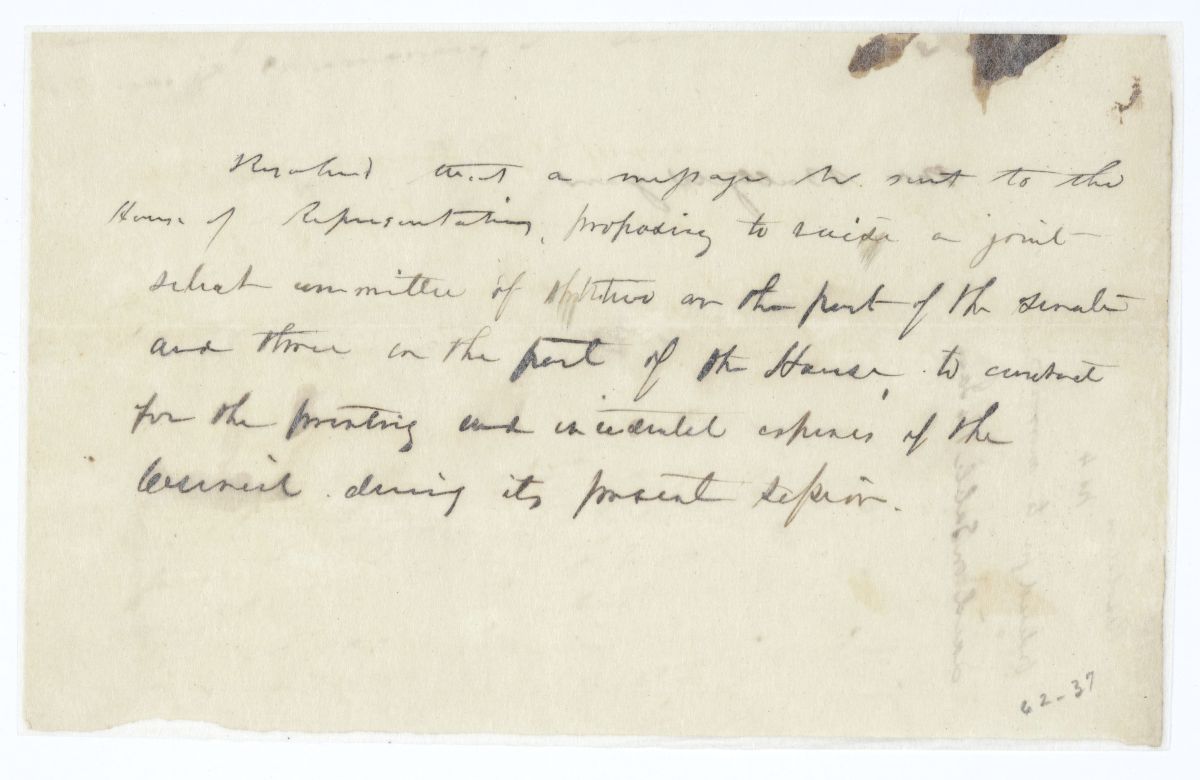 Resolved that a message be sent to the
House of Representatives, proposing to raise a joint
select committee of two on the part of the senate
and three on the part of the House, to contract
for the printing and incidental expenses of the
Council during its present session.
62-37